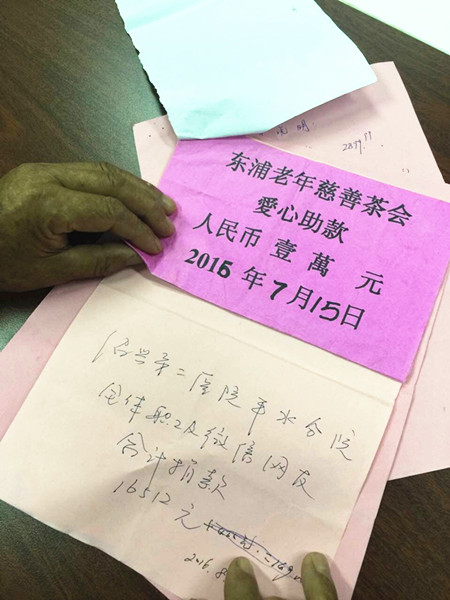 说明
2899.99
东浦老年慈善茶会
愛心助款
人民币 壹 萬 元
2016 年 7 月 15 日
绍兴第二医院平水分院
全体职工及微信网友
合计捐款
16512元
2016.8